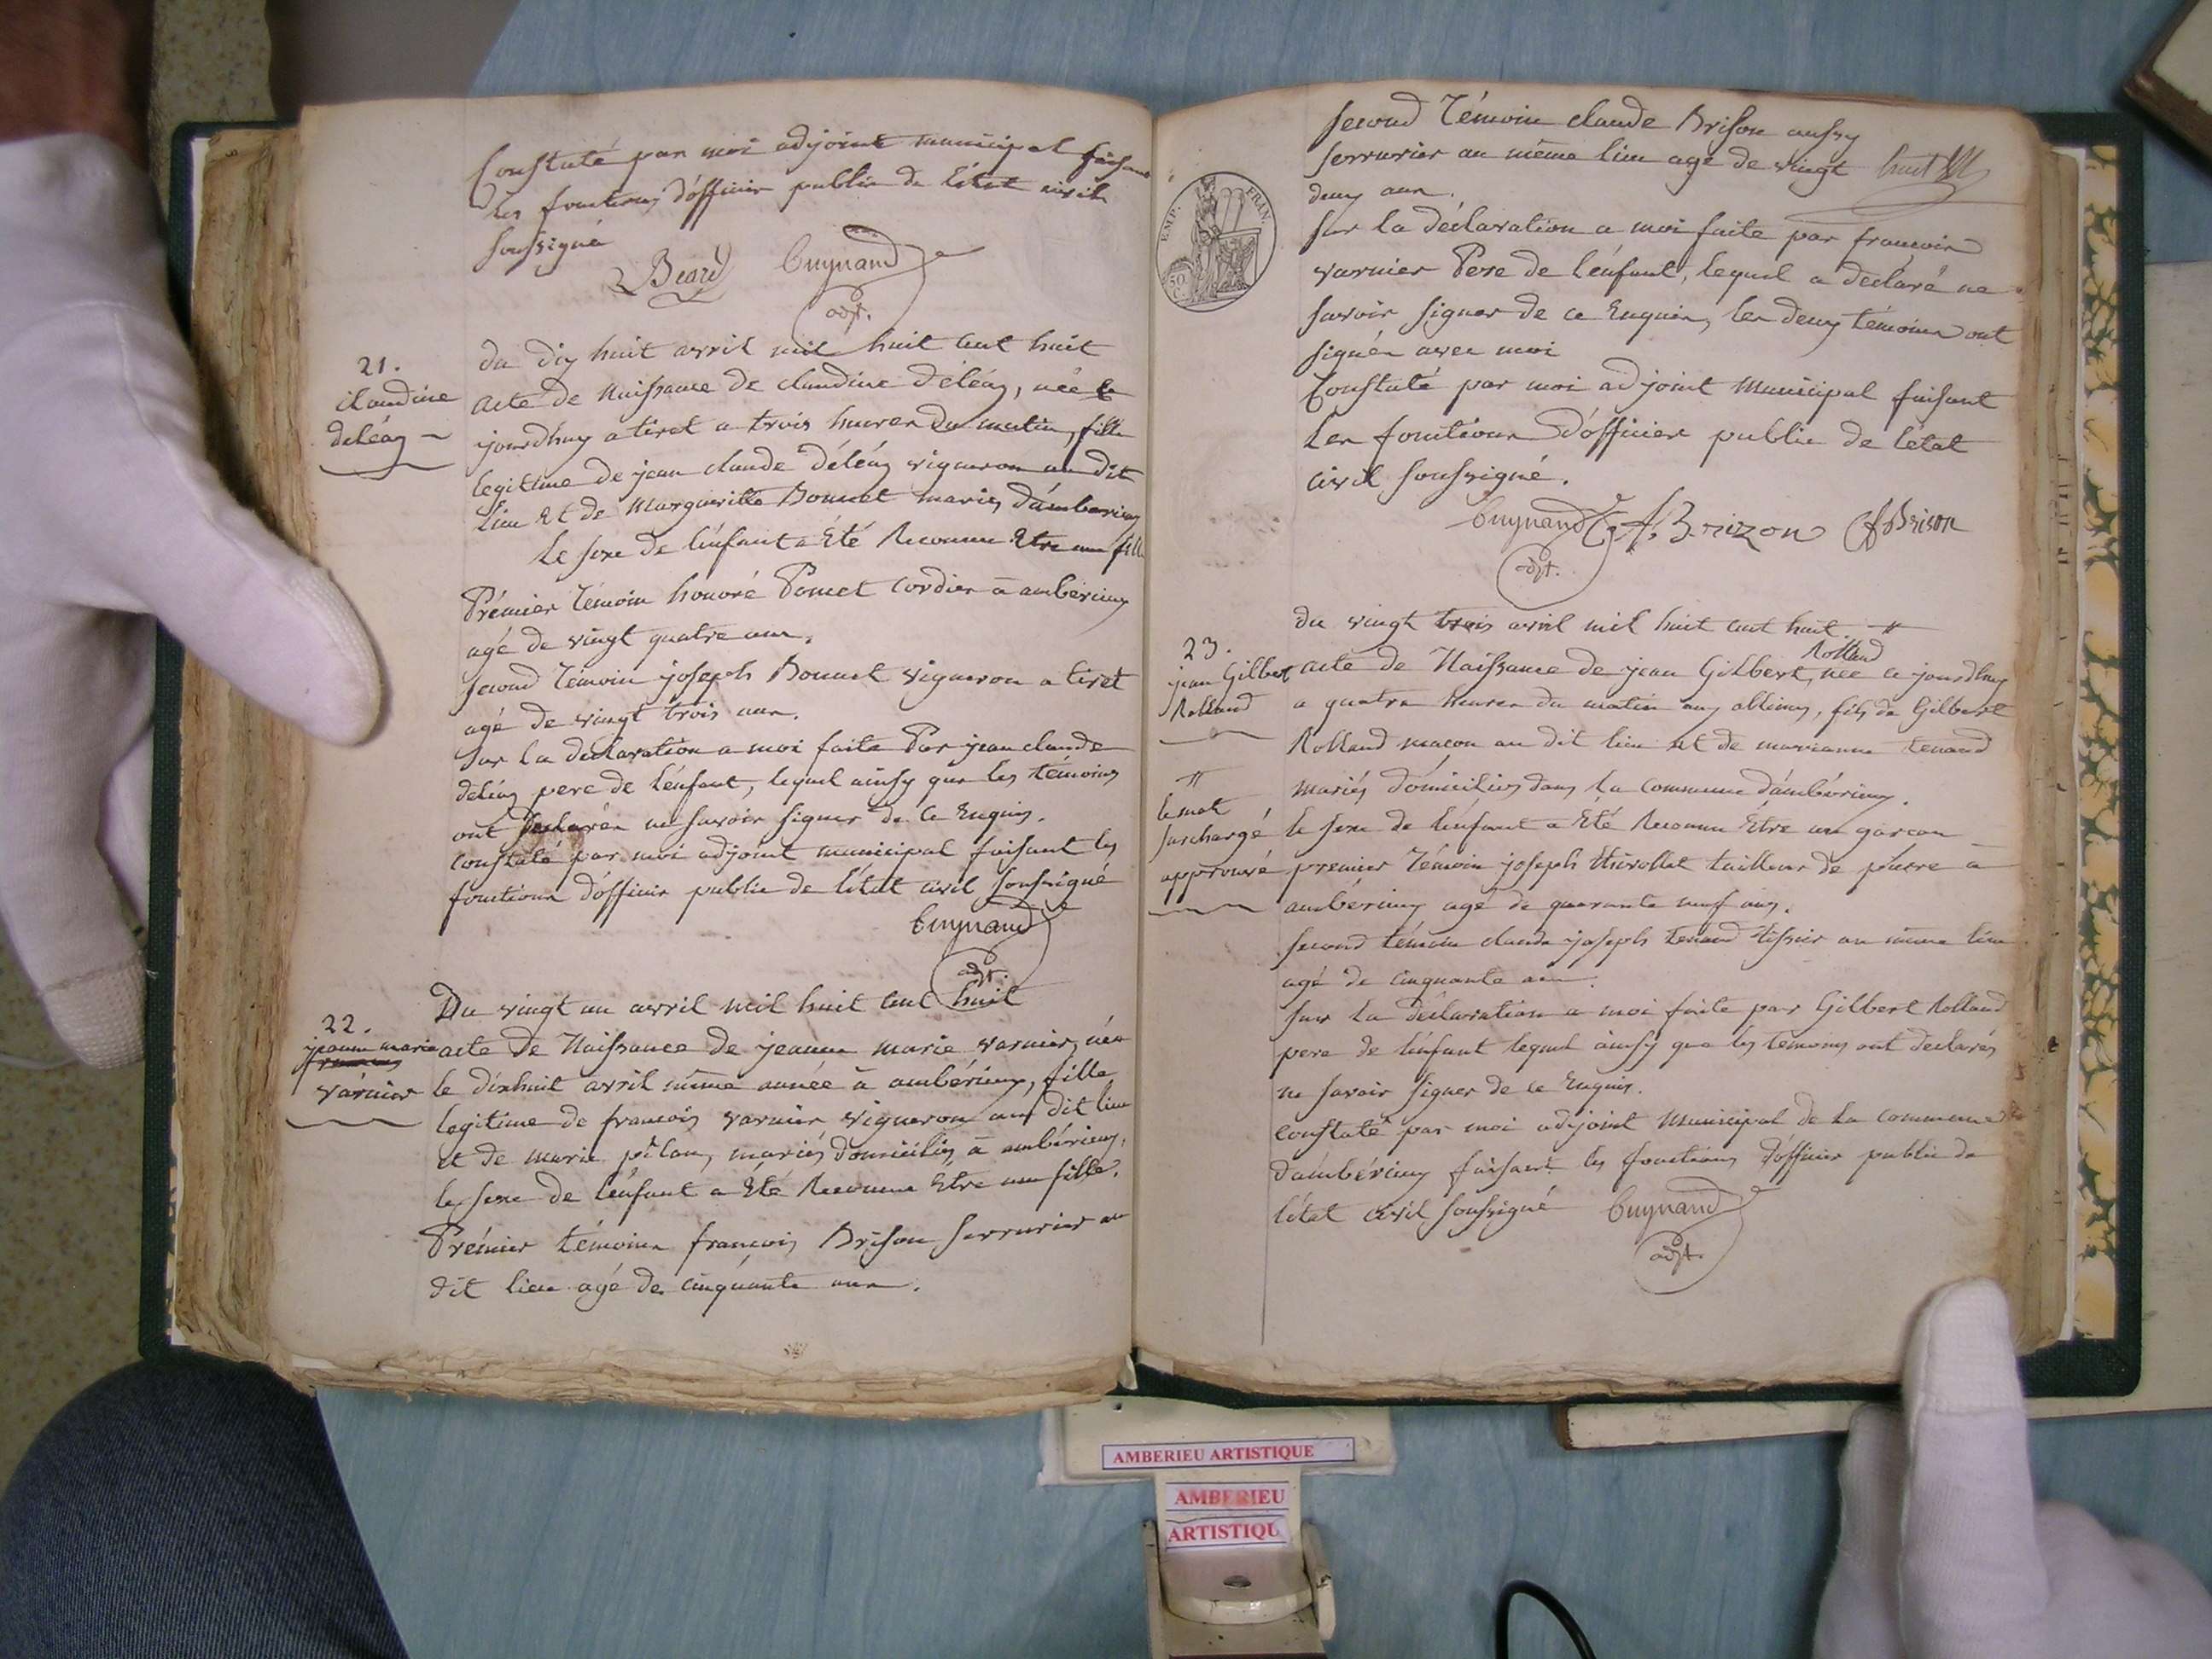 Constaté par moi adjoint municipal faisant
les fonctions d'officier public de l'état civil
soussigné
Beard Guynand
adjt.
21.
claudine
deléaz
du dix huit avril mil huit cent huit
acte de Naissance de claudine déléaz, née le
jourd'huy a tiret a trois heures du matin, fille
legitime de jean claude déléaz vigneron au dit
lieu et de Margueritte Bonnet mariés d'amberieux
Le sexe de l'enfant a Eté Reconnu Etre une fille
Prémier témoin honoré Pomet cordier a amberieux
agé de vingt quatre ans,
second témoin joseph Bonnet vigneron a tiret
agé de vingt trois ans.
sur la déclaration a moi faite Par jean claude
deléaz pere de l'enfant, lequel ainsy que les témoins
ont déclarés ne savoir signer de ce Enquis.
constaté par moi adjoint municipal faisant les
fonctions d'officier public de l'état civil soussigné
Guynand
adjt.
22.
jeanne marie
varnier
Du vingt un avril mil huit cent huit
acte de Naissance de jeanne marie varnier, née
le dixhuit avril même année à ambérieux, fille
legitime de francois varnier vigneron au dit lieu
et de marie pilan, mariés domiciliés à ambérieux,
le sexe de l'enfant a Eté Reconnu Etre une fille.
Prémier témoin francois Brison serrurier au
dit lieu agé de cinquante ans.
second témoin claude Brison aussy
serrurier au même lieu agé de vingt huit
deux ans.
EMP. FRAN.
50
sur la déclaration a moi faite par francois
varnier Pere de l'enfant, lequel a déclaré ne
savoir signer de ce Enquis, les deux témoins ont
signés avec moi
Constaté par moi adjoint Municipal faisant
Les fonctions d'officier public de l'état
civil soussigné.
Guynand f. Brizon Brison
adjt.
23.
jean Gilbert
Rolland
du vingt trois avril mil huit cent huit.
Rolland
acte de Naissance de jean Gilbert, née ce jourd'huy
a quatre heures du matin aux allimes, fils de Gilbert
Rolland macon au dit lieu et de marianne tenand
mariés domiciliés dans la commune d'ambérieux.
le mot
surchargé
approuvé
le sexe de l'enfant a Eté Reconnu Etre un garcon
premier témoin joseph thivollet tailleur de pierre à
ambérieux agé de quarante neuf ans.
second témoin claude joseph tenand tissier au même lieu
agé de cinquante ans.
sur la déclaration a moi faite par Gilbert Rolland
pere de l'enfant lequel ainsy que les témoins ont declarés
ne savoir signer de ce Enquis.
constaté par moi adjoint Municipal de la commune
d'ambérieux faisant les fonctions d'officier public de
l'état civil soussigné Guynand
adjt.
AMBERIEU ARTISTIQUE
AMBERIEU
ARTISTIQU